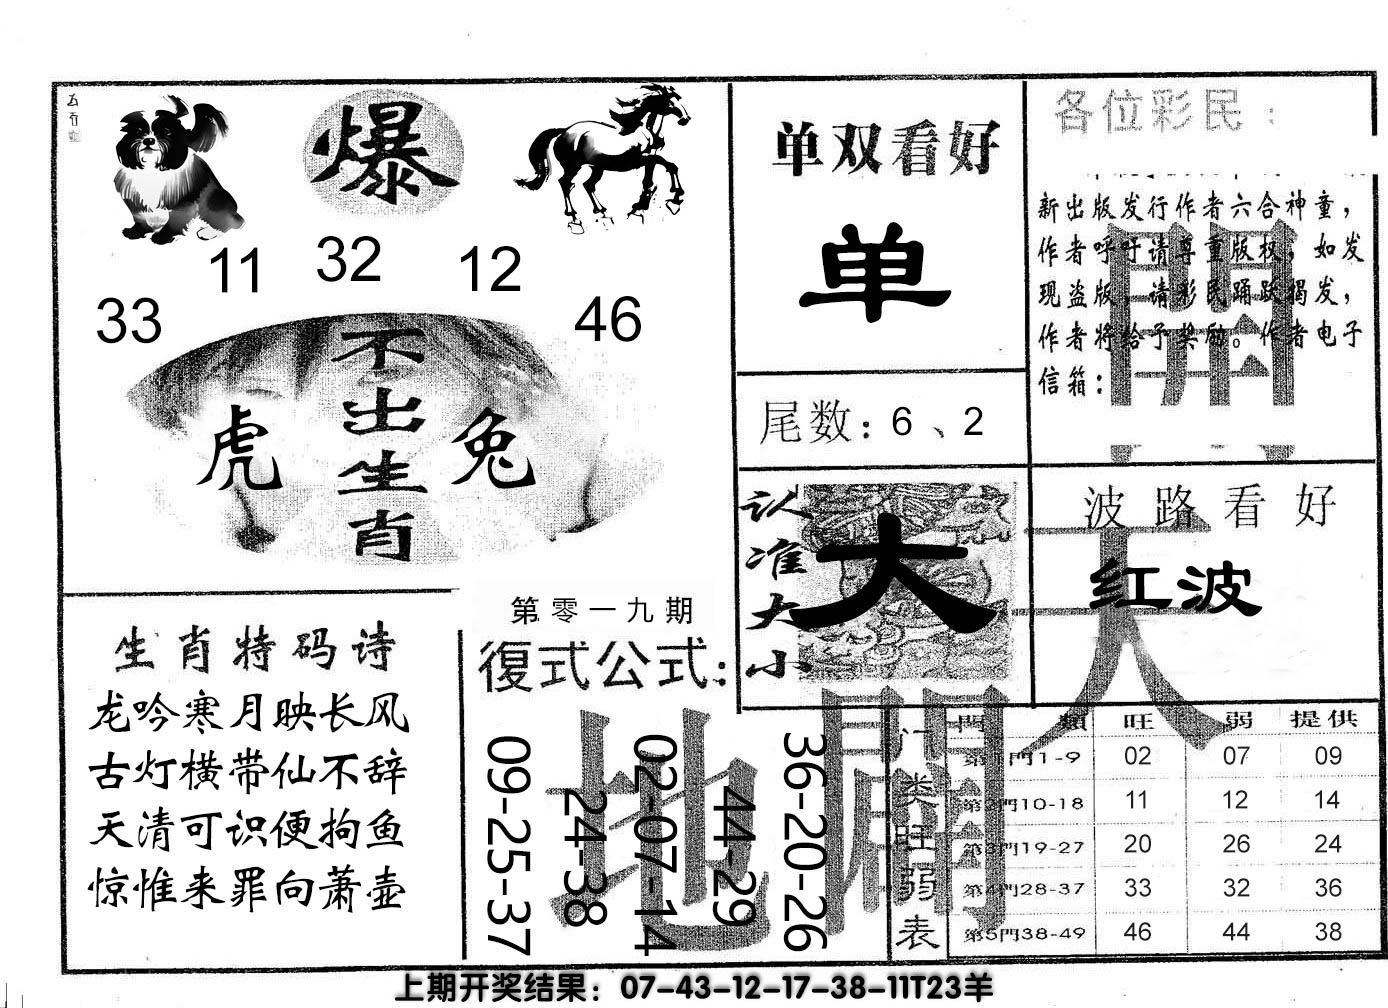 爆
11 32 12
33 46
不出生肖
虎 兔
单双看好
单
尾数：6、2
各位彩民：
新出版发行作者六合神童，
作者呼吁请尊重版权，如发
现盗版，请彩民踊跃揭发，
作者将给予奖励。作者电子
信箱：
認准大小
大
波路看好
红波
生肖特码诗
龙吟寒月映长风
古灯横带仙不辞
天清可识便拘鱼
惊惟来罪向萧壶
第零一九期
復式公式：
09-25-37
24-38
02-07-14
44-29
36-20-26
天
地
開
開
门类旺弱表
門 類 旺 弱 提供
第1門1-9 02 07 09
第2門10-18 11 12 14
第3門19-27 20 26 24
第4門28-37 33 32 36
第5門38-49 46 44 38
上期开奖结果：07-43-12-17-38-11T23羊